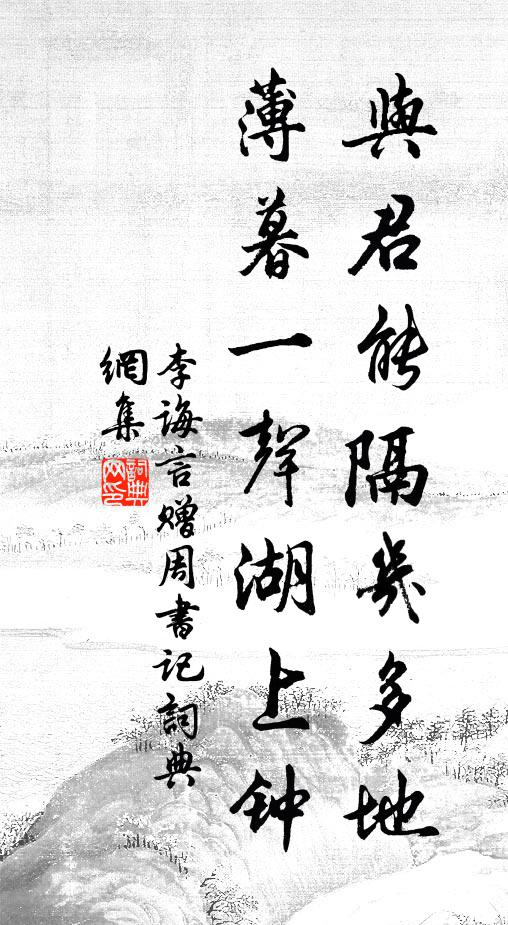 與君能隔幾多地
薄暮一聲湖上钟
李誨言贈周書記詞典
網集
詞典
网印